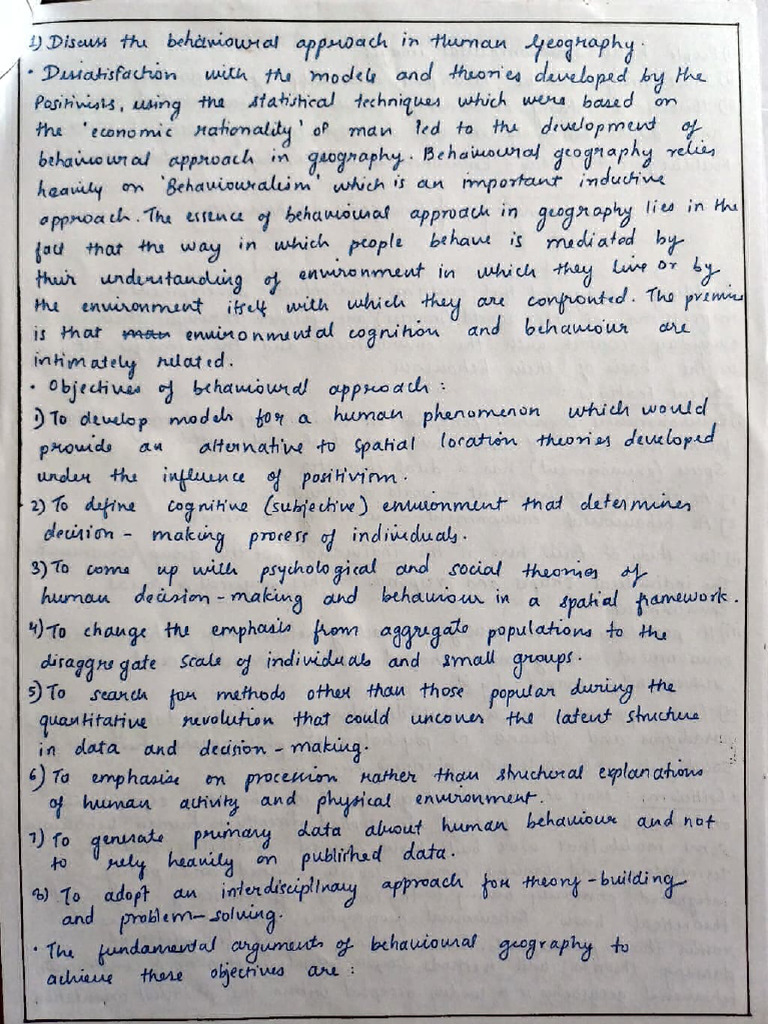 1) Discuss the behavioural approach in Human Geography.
• Dessatisfaction with the models and theories developed by the
Positivists, using the statistical techniques which were based on
the 'economic rationality' of man led to the development of
behavioural approach in geography. Behavioural geography relies
heavily on 'Behaviouralism' which is an important inductive
approach. The essence of behavioural approach in geography lies in the
fact that the way in which people behave is mediated by
their understanding of environment in which they live or by
the environment itself with which they are confronted. The premise
is that man environmental cognition and behaviour are
intimately related.
• Objectives of behavioural approach :
1) To develop models for a human phenomenon which would
provide an alternative to spatial location theories developed
under the influence of positivism.
2) To define cognitive (subjective) environment that determines
decision - making process of individuals.
3) To come up with psychological and social theories of
human decision-making and behaviour in a spatial framework.
4) To change the emphasis from aggregate populations to the
disaggregate scale of individuals and small groups.
5) To search for methods other than those popular during the
quantitative revolution that could uncover the latent structure
in data and decision - making.
6) To emphasise on procession rather than structural explanations
of human activity and physical environment.
7) To generate primary data about human behaviour and not
to rely heavily on published data.
8) To adopt an interdisciplinary approach for theory-building
and problem-solving.
• The fundamental arguments of behavioural geography to
achieve these objectives are :